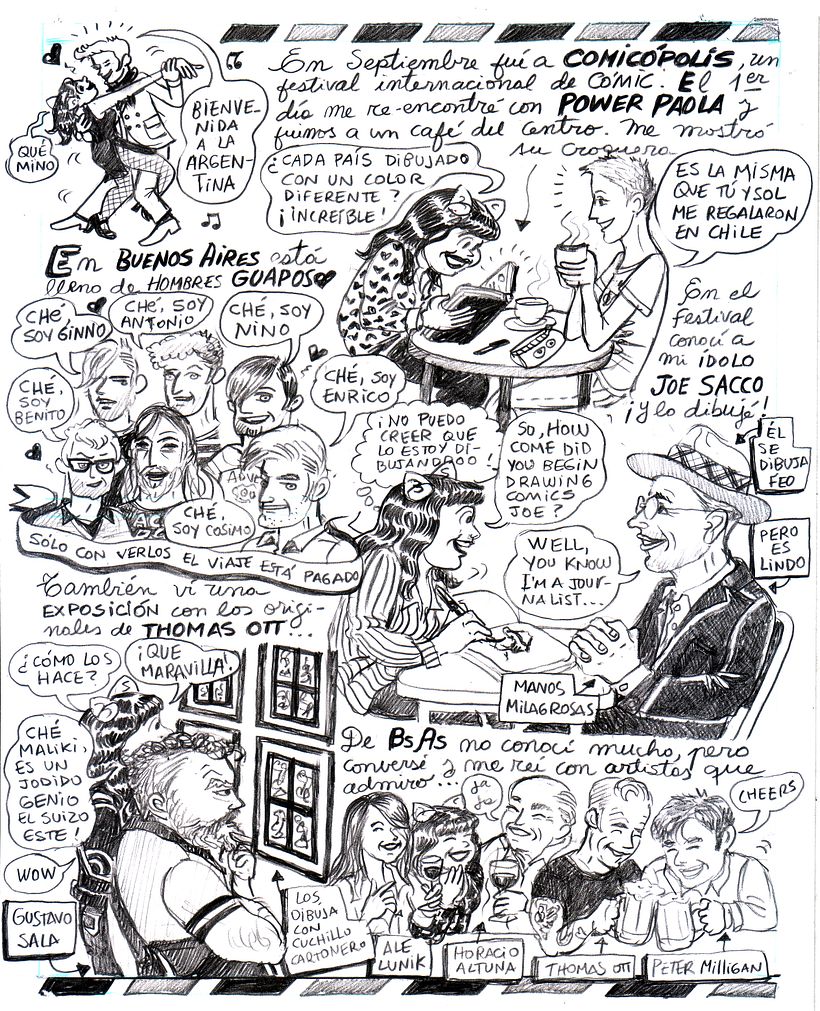 BIENVE-
NIDA
A LA
ARGEN-
TINA
QUÉ
MINO
En Septiembre fuí a COMICÓPOLIS, un
festival internacional de CÓMIC. El 1er
día me re-encontré con POWER PAOLA y
fuimos a un café del centro. Me mostró
su croquera
¿CADA PAÍS DIBUJADO
CON UN COLOR
DIFERENTE?
¡INCREÍBLE!
ES LA MISMA
QUE TÚ Y SOL
ME REGALARON
EN CHILE
En BUENOS AIRES está
lleno de HOMBRES GUAPOS
CHÉ,
SOY GINNO
CHÉ, SOY
ANTONIO
CHÉ, SOY
NINO
CHÉ,
SOY
BENITO
CHÉ, SOY
ENRICO
CHÉ,
SOY COSIMO
SÓLO CON VERLOS EL VIAJE ESTÁ PAGADO
En el
festival
conocí a
mi ÍDOLO
JOE SACCO
¡Y lo dibujé!
¡NO PUEDO
CREER QUE
LO ESTOY DI-
BUJANDOOO!
SO, HOW
COME DID
YOU BEGIN
DRAWING
COMICS
JOE?
WELL,
YOU KNOW
I'M A JOUR-
NALIST...
ÉL
SE
DIBUJA
FEO
PERO
ES
LINDO
MANOS
MILAGROSAS
También vi una
EXPOSICIÓN con los origi-
nales de THOMAS OTT...
¿CÓMO LOS
HACE?
¡QUE
MARAVILLA!
CHÉ
MALIKI,
ES UN
JODIDO
GENIO
EL SUIZO
ESTE!
WOW
GUSTAVO
SALA
LOS
DIBUJA
CON
CUCHILLO
CARTONERO
De BsAs no conocí mucho, pero
conversé y me reí con artistas que
admiro...
ja
ja
CHEERS
ALE
LUNIK
HORACIO
ALTUNA
THOMAS OTT
PETER MILLIGAN